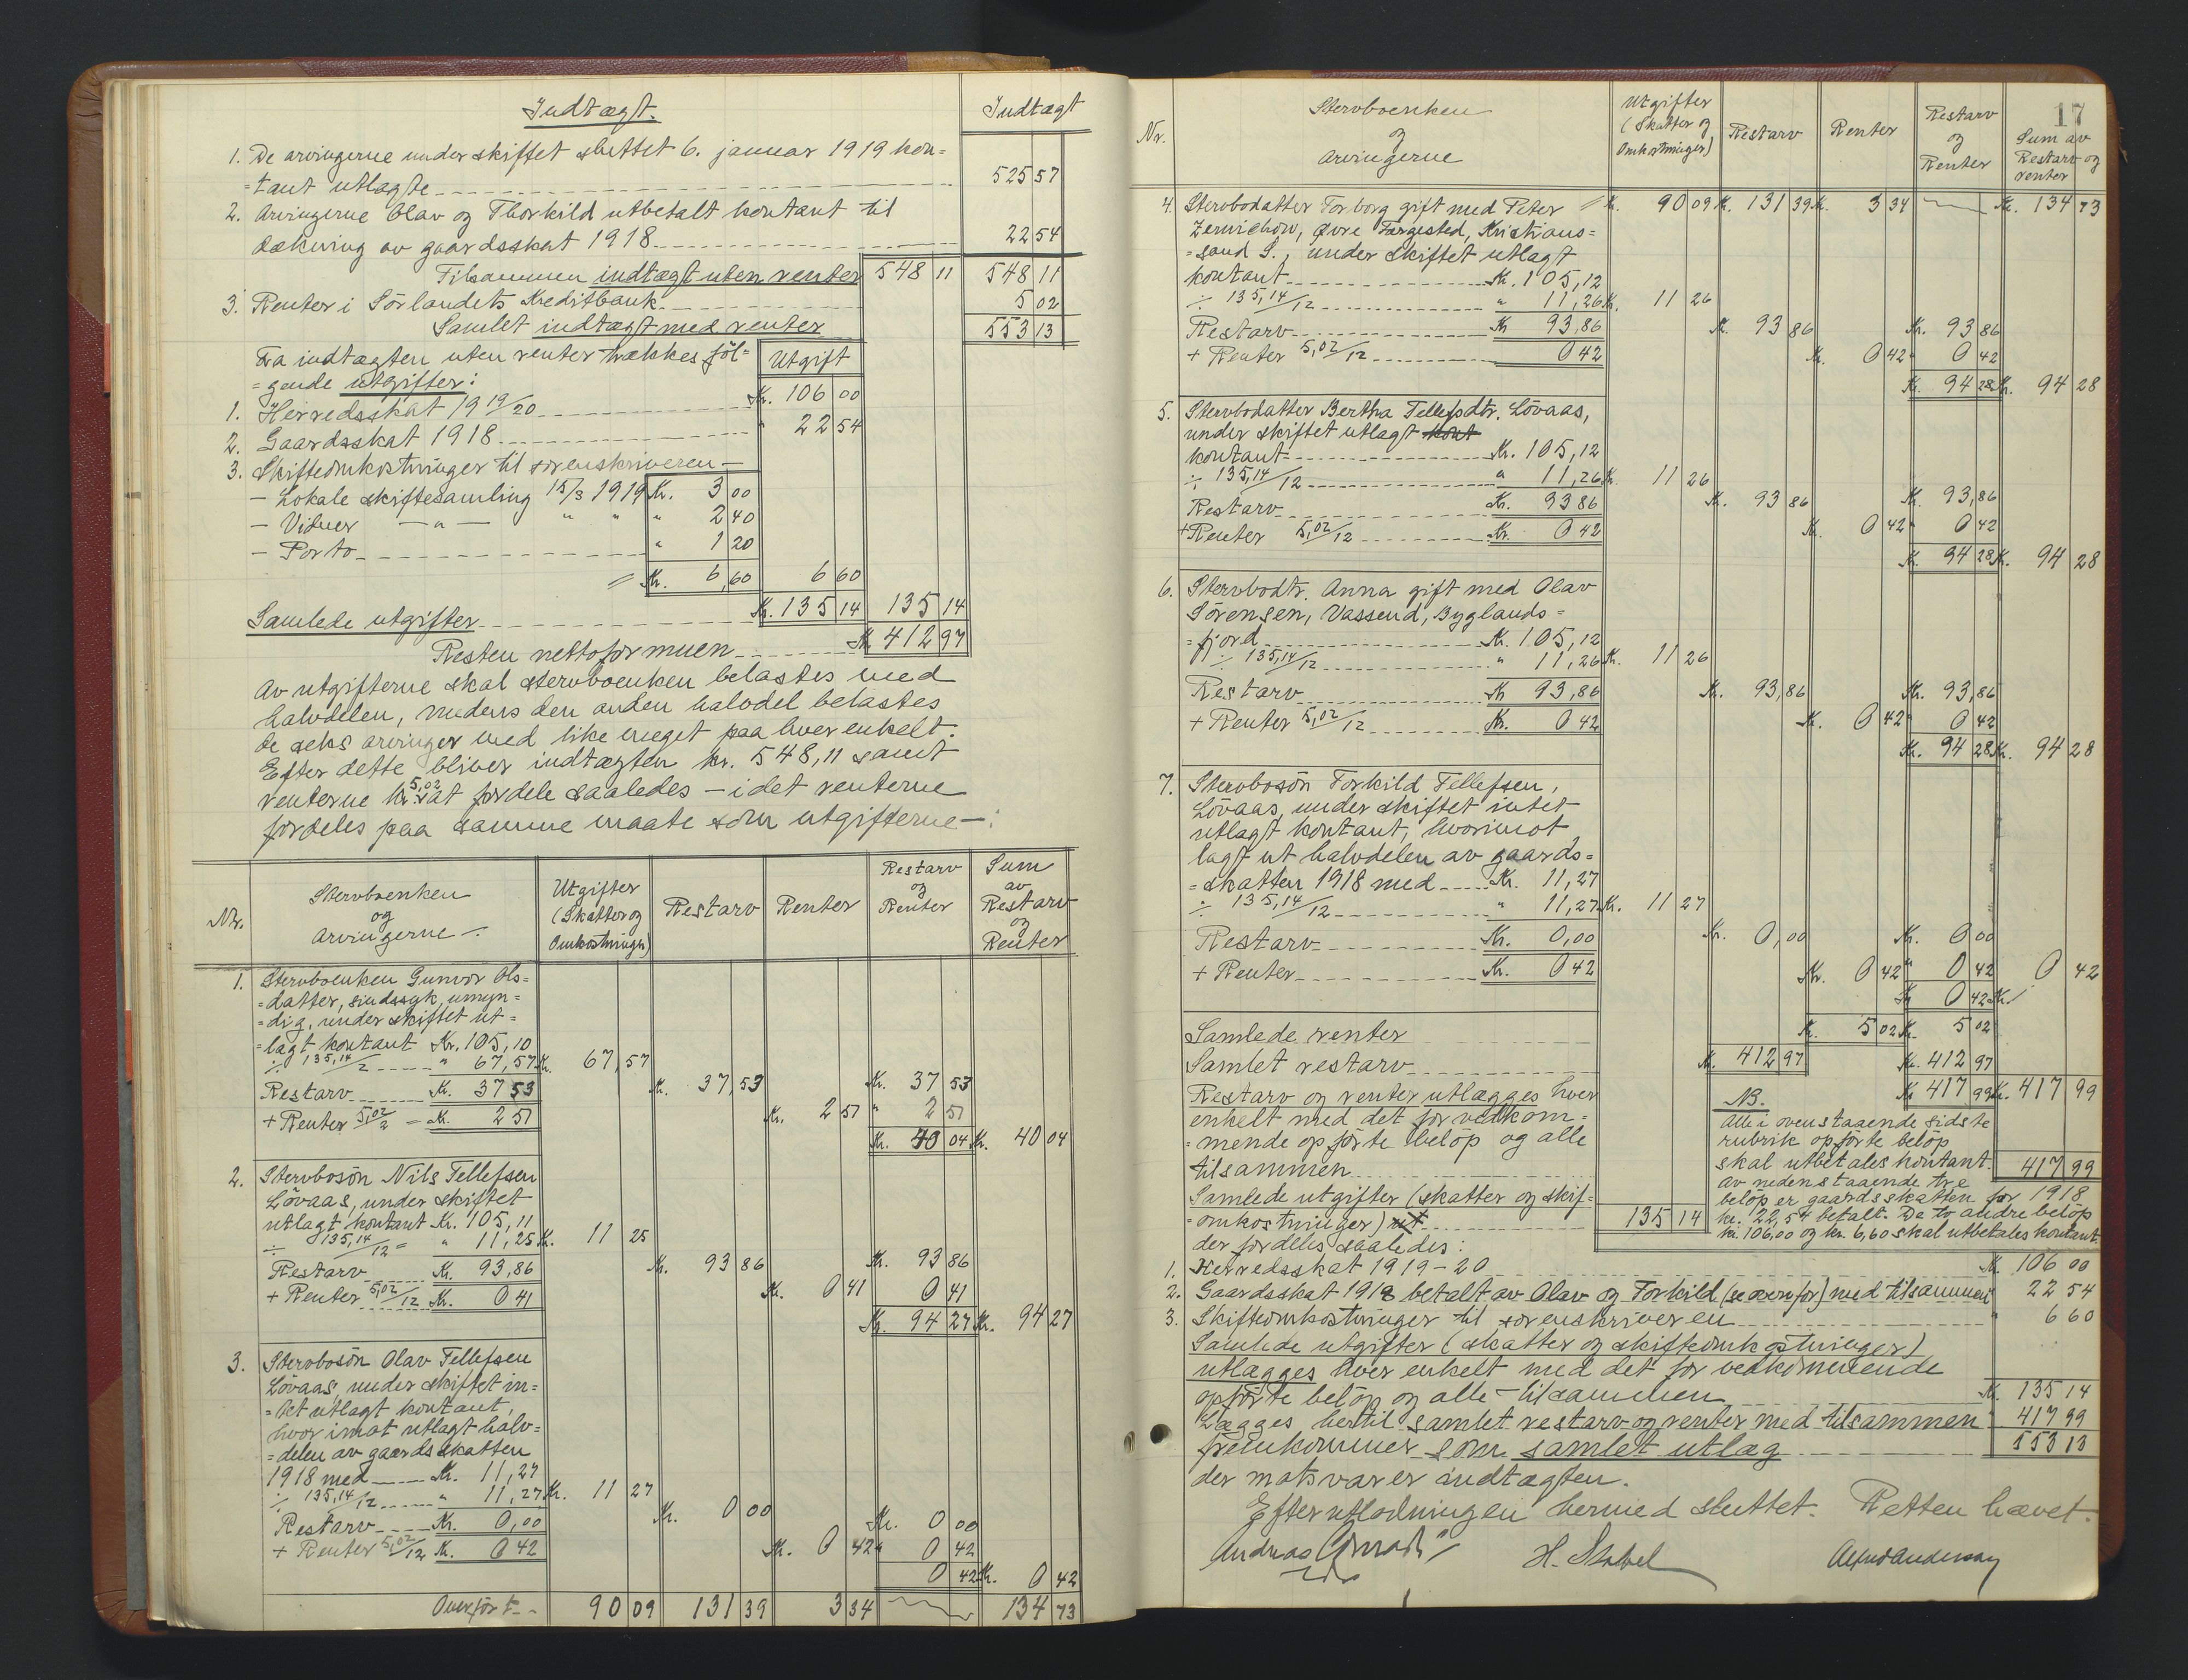 Indtægt.
Indtægt
1. De arvingerne under skiftet sluttet 6. januar 1919 kon=
=tant utlagte 525 57
2. Arvingerne Olav og Thorkild utbetalt kontant til
dækning av gaardsskat 1918 22 54
Tilsammen indtægt uten renter 548 11 548 11
3. Renter i Sörlandets Kreditbank 5 02
Samlet indtægt med renter 553 13
Fra indtægten uten renter trækkes föl= Utgift
=gende utgifter:
1. Herredsskat 19 19/20 Kr. 106 00
2. Gaardsskat 1918 " 22 54
3. Skifteomkostninger til sorenskriveren —
— Lokale skiftesamling 15/3 1919 Kr. 3 00
— Vidner — " — " " " 2 40
— Porto " 1 20
= Kr. 6,60 6 60
Samlede utgifter Kr. 135 14 135 14
Resten nettoformuen Kr. 412 97
Av utgifterne skal stervboenken belastes med
halvdelen, medens den anden halvdel belastes
de seks arvinger med like meget paa hver enkelt.
Efter dette bliver indtægten kr. 548,11 samt
renterne kr. 5,02 at fordele saaledes — idet renterne
fordeles paa samme maate som utgifterne —:
Nr. Stervboenken og Arvingerne —. Utgifter (Skatter og Omkostninger) Restarv Renter Restarv og Renter Sum av Restarv og Renter
1. Stervboenken Gunvor Ols=
=datter, sindssyk, umyn=
=dig, under skiftet ut=
=lagt kontant Kr. 105,10
÷ 135,14/2 " 67,57 Kr. 67,57
Restarv Kr. 37 53 Kr. 37,53 Kr. 37 53
+ Renter 5,02/2 = Kr. 2 51 Kr. 2 51 " 2 51
Kr. 40 04 Kr. 40 04
2. Stervbosön Nils Tellefsen
Lövaas, under skiftet
utlagt kontant Kr. 105,11
÷ 135,14/12 = " 11,25 Kr. 11 25
Restarv Kr. 93,86 Kr. 93 86 Kr. 93 86
+ Renter 5,02/12 Kr. 0 41 Kr. 0 41 0 41
Kr. 94 27 Kr. 94 27
3. Stervbosön Olav Tellefsen
Lövaas, under skiftet in=
=tet utlagt kontant,
hvorimot utlagt halv=
=delen av gaardsskatten
1918 med Kr. 11,27
÷ 135,14/12 " 11,27 Kr. 11 27
Restarv Kr. 0,00 Kr. 0 00 Kr. 0 00
+ Renter 5,02/12 Kr. 0 42 Kr. 0 42 " 0 42
0 42 Kr. 0 42
Overfört — 90 09 131 39 3 34 134 73
17
Nr. Stervboenken og Arvingerne Utgifter (Skatter og Omkostninger) Restarv Renter Restarv og Renter Sum av Restarv og renter
4. Stervbodatter Torborg gift med Peter = Kr. 90 09 Kr. 131 39 Kr. 3 34 Kr. 134 73
Zernichow, Øvre Torgested, Kristians=
=sand S., under skiftet utlagt
kontant Kr. 105,12
÷ 135,14/12 " 11,26 Kr. 11 26
Restarv Kr 93,86 Kr. 93 86 Kr. 93 86
+ Renter 5,02/12 0 42 Kr. 0 42 " 0 42
Kr. 94 28 Kr. 94 28
5. Stervbodatter Bertha Tellefsdtr. Lövaas,
under skiftet utlagt kont
kontant Kr. 105,12
÷ 135,14/12 " 11,26 Kr. 11 26
Restarv Kr. 93 86 Kr. 93 86 Kr. 93,86
+ Renter 5,02/12 Kr. 0 42 Kr. 0 42 " 0 42
Kr. 94 28 Kr. 94 28
6. Stervbodtr. Anna gift med Olav
Sörensen, Vassend, Byglands=
=fjord Kr. 105,12
÷ 135,14/12 " 11,26 Kr. 11 26
Restarv Kr 93,86 Kr. 93,86 Kr. 93,86
+ Renter 5,02/12 Kr. 0 42 Kr. 0 42 " 0 42
Kr. 94 28 Kr. 94 28
7. Stervbosön Torkild Tellefsen,
Lövaas, under skiftet intet
utlagt kontant, hvorimot
lagt ut halvdelen av gaards=
=skatten 1918 med Kr. 11,27
÷ 135,14/12 " 11,27 Kr. 11 27
Restarv Kr. 0,00 Kr. 0,00 Kr. 0 00
+ Renter Kr. 0 42 Kr. 0 42 " 0 42 0 42
Kr 0 42 Kr
Samlede renter Kr. 5 02 Kr. 5 02
Samlet restarv Kr. 412 97 Kr. 412 97
Restarv og renter utlægges hver Kr 417 99 Kr. 417 99
enkelt med det for vedkom=
=mende opförte belöp og alle
tilsammen 417 99
NB.
Alle i ovenstaaende sidste
rubrik opförte belöp
skal utbetales kontant.
Av nedenstaaende tre
belöp er gaardsskatten for 1918
kr. 22,54 betalt. De to andre belöp
kr. 106,00 og kr. 6,60 skal utbetales kontant
Samlede utgifter (skatter og skif=
=omkostninger) ut 135 14
der fordeles saaledes:
1. Herredsskat 1919–20 Kr. 106 00
2. Gaardsskat 1918 betalt av Olav og Torkild (se ovenfor) med tilsammen 22 54
3. Skifteomkostninger til sorenskriveren " 6 60
Samlede utgifter (skatter og skifteomkostninger)
utlægges hver enkelt med det for vedkommende
opförte belöp og alle — tilsammen Kr. 135 14
Lægges hertil samlet restarv og renter med tilsammen " 417 99
fremkommer som samlet utlæg 553 13
der motsvarer indtægten.
Efter utlodningen hermed sluttet. Retten hævet.
Andreas
H. Stabel
Alfred Andersen